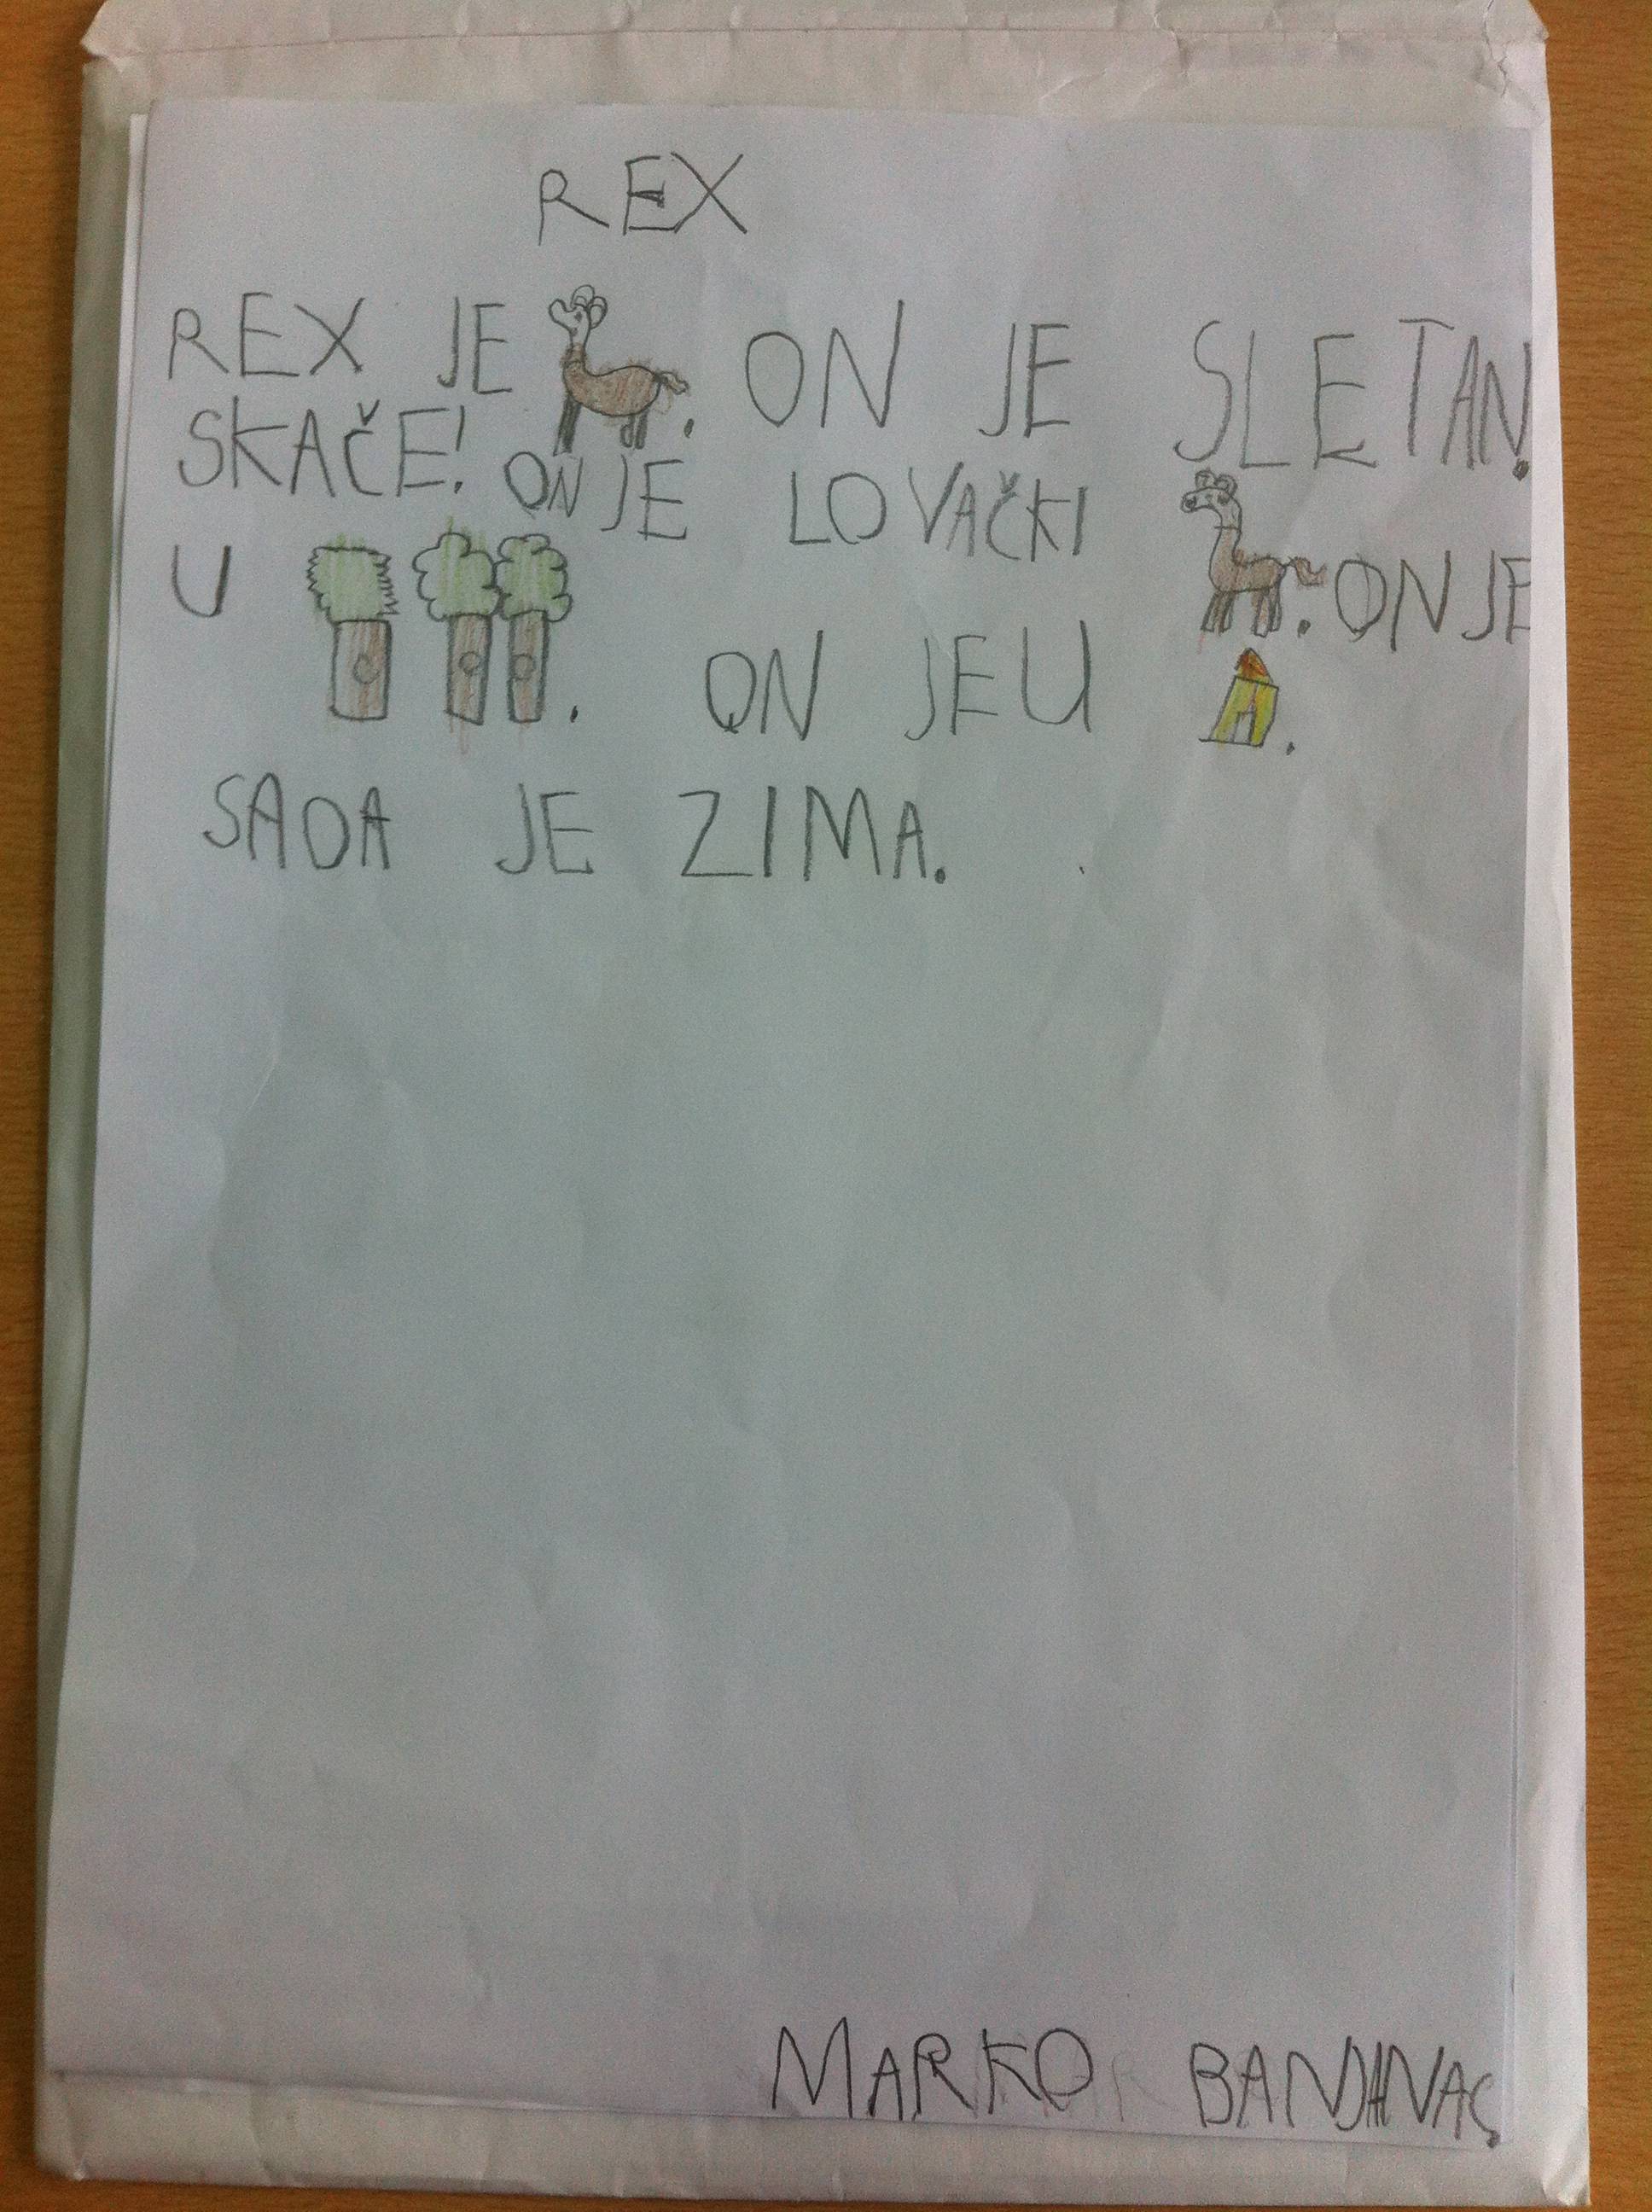 REX
REX JE . ON JE SLETAN.
SKAČE! ON JE LOVAČKI . ON JE
U . ON JE U .
SADA JE ZIMA.
MARKO